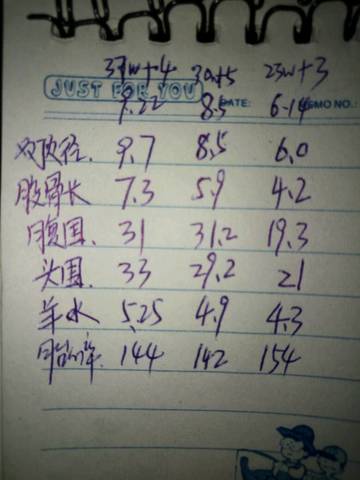 37w+4 30w+5 23w+3
JUST FOR YOU
9.22 8.5 DATE: 6-14 MEMO NO.:
双顶径. 9.7 8.5 6.0
股骨长 7.3 5.9 4.2
腹围. 31 31.2 19.3
头围. 33 29.2 21
羊水 5.25 4.9 4.3
胎心率. 144 142 154